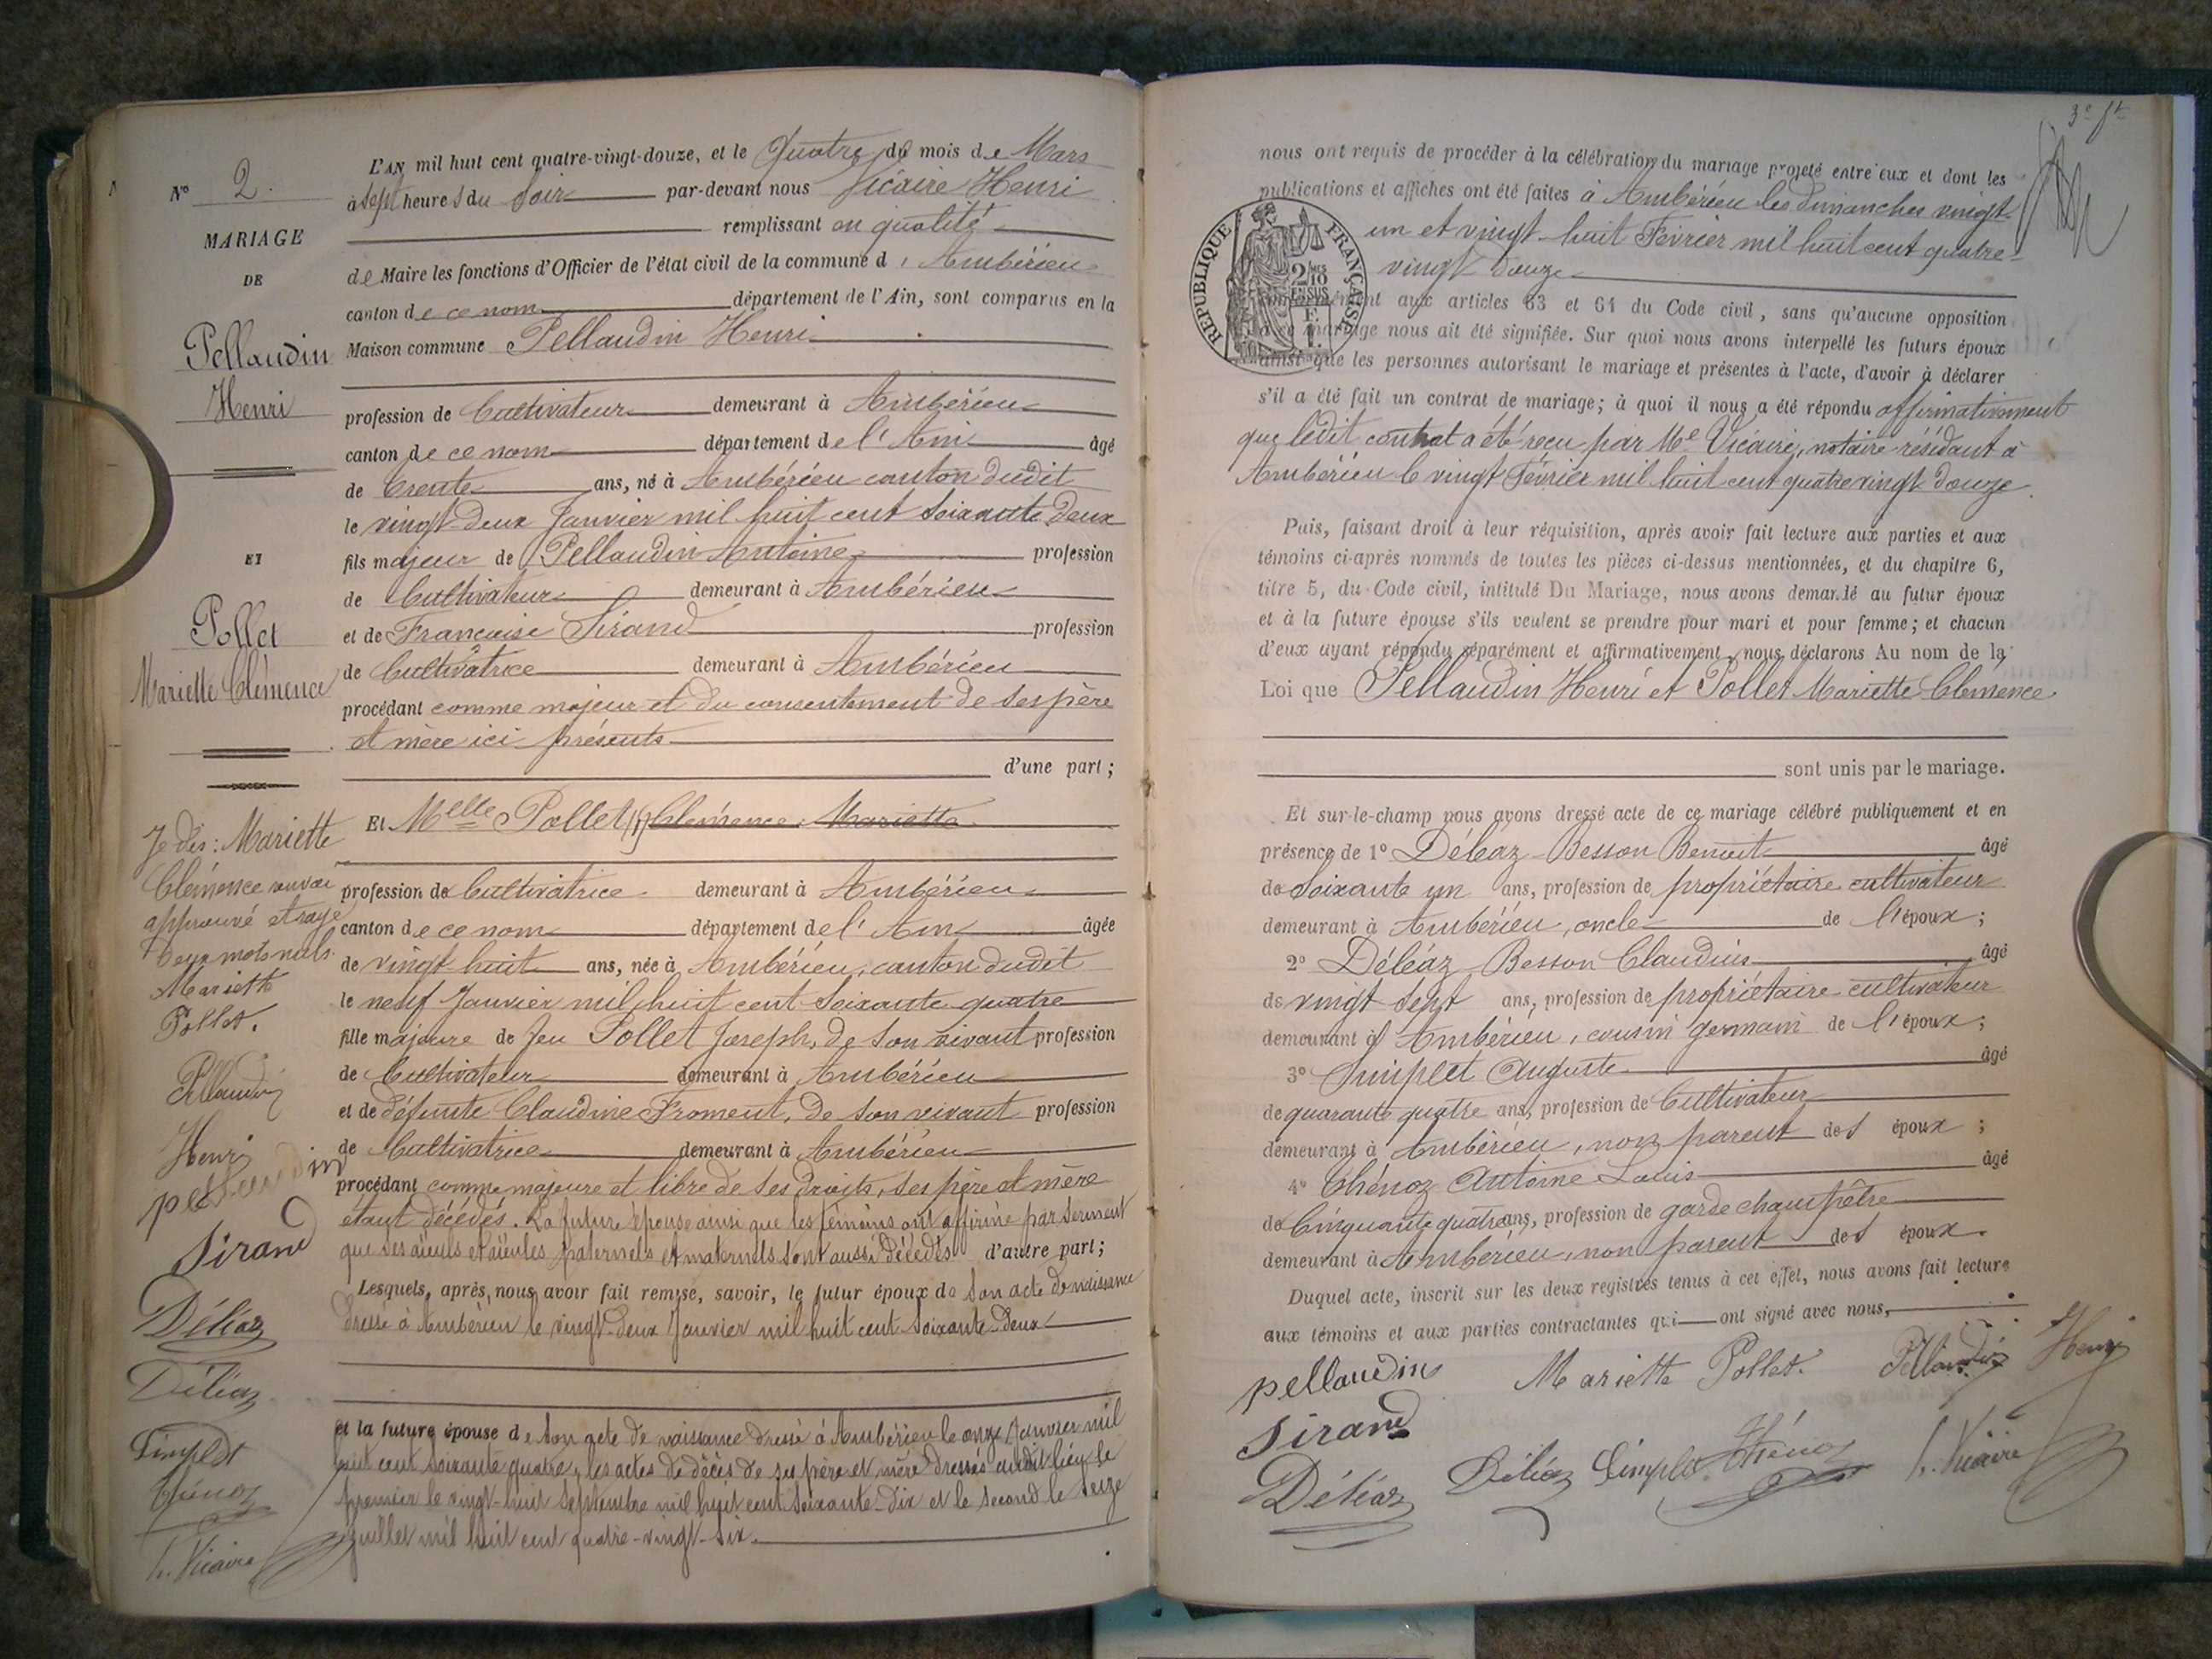 N° 2.
MARIAGE
DE
Pellaudin
Henri
ET
Pollet
Mariette Clémence
Je dis: Mariette
Clémence
approuvé et rayé
deux mots nuls.
Mariette
Pollet.
Pellaudin
Henri
pellaudin
Sirand
Déléaz
Déléaz
Simplet
Chénoz
h. Vicaire
L'AN mil huit cent quatre-vingt-douze, et le Quatre du mois de Mars
à sept heures du Soir par-devant nous Vicaire Henri
remplissant en qualité
de Maire les fonctions d'Officier de l'état civil de la commune d'Ambérieu
canton de ce nom département de l'Ain, sont comparus en la
Maison commune Pellaudin Henri
profession de Cultivateur demeurant à Ambérieu
canton de ce nom département de l'Ain âgé
de trente ans, né à Ambérieu canton dudit
le vingt-deux Janvier mil huit cent soixante deux
fils majeur de Pellaudin Antoine profession
de Cultivateur demeurant à Ambérieu
et de Françoise Sirand profession
de Cultivatrice demeurant à Ambérieu
procédant comme majeur et du consentement de ses père
et mère ici présents
d'une part;
Et Melle Pollet Clémence Mariette
profession de Cultivatrice demeurant à Ambérieu
canton de ce nom département de l'Ain âgée
de vingt huit ans, née à Ambérieu, canton dudit
le neuf Janvier mil huit cent soixante quatre
fille majeure de feu Pollet Joseph, de son vivant profession
de Cultivateur demeurant à Ambérieu
et de défunte Claudine Froment, de son vivant profession
de Cultivatrice demeurant à Ambérieu
procédant comme majeure et libre de ses droits, ses père et mère
étant décédés. La future épouse ainsi que les témoins ont affirmé par serment
que ses aïeuls et aïeules paternels et maternels sont aussi décédés d'autre part;
Lesquels, après nous avoir fait remise, savoir, le futur époux de son acte de naissance
dressé à Ambérieu le vingt-deux Janvier mil huit cent soixante-deux
et la future épouse de son acte de naissance dressé à Ambérieu le onze Janvier mil
huit cent soixante quatre, les actes de décès de ses père et mère dressés audit lieu le
premier le vingt-huit Septembre mil huit cent soixante-dix et le second le seize
Juillet mil huit cent quatre-vingt-six.
nous ont requis de procéder à la célébration du mariage projeté entre eux et dont les
publications et affiches ont été faites à Ambérieu les dimanches vingt-
un et vingt-huit Février mil huit cent quatre-
vingt douze
RÉPUBLIQUE FRANÇAISE
aux articles 63 et 64 du Code civil, sans qu'aucune opposition
mariage nous ait été signifiée. Sur quoi nous avons interpellé les futurs époux
ainsi que les personnes autorisant le mariage et présentes à l'acte, d'avoir à déclarer
s'il a été fait un contrat de mariage; à quoi il nous a été répondu affirmativement
que ledit contrat a été reçu par Me Vicaire, notaire résidant à
Ambérieu le vingt Février mil huit cent quatre vingt douze.
Puis, faisant droit à leur réquisition, après avoir fait lecture aux parties et aux
témoins ci-après nommés de toutes les pièces ci-dessus mentionnées, et du chapitre 6,
titre 5, du Code civil, intitulé Du Mariage, nous avons demandé au futur époux
et à la future épouse s'ils veulent se prendre pour mari et pour femme; et chacun
d'eux ayant répondu séparément et affirmativement, nous déclarons Au nom de la
Loi que Pellaudin Henri et Pollet Mariette Clémence
sont unis par le mariage.
Et sur-le-champ nous avons dressé acte de ce mariage célébré publiquement et en
présence de 1° Déléaz-Besson Benoit âgé
de Soixante un ans, profession de propriétaire cultivateur
demeurant à Ambérieu, oncle de l'époux;
2° Déléaz Besson Claudius âgé
de vingt sept ans, profession de propriétaire cultivateur
demeurant à Ambérieu, cousin germain de l'époux;
3° Simplet Auguste âgé
de quarante quatre ans, profession de Cultivateur
demeurant à Ambérieu, non parent des époux;
4° Chénoz Antoine Louis âgé
de Cinquante quatre ans, profession de garde champêtre
demeurant à Ambérieu, non parent des époux.
Duquel acte, inscrit sur les deux registres tenus à cet effet, nous avons fait lecture
aux témoins et aux parties contractantes qui ont signé avec nous,
pellaudin Mariette Pollet. Pellaudin Henri
Sirand
Déléaz Déléaz Simplet Chénoz h. Vicaire